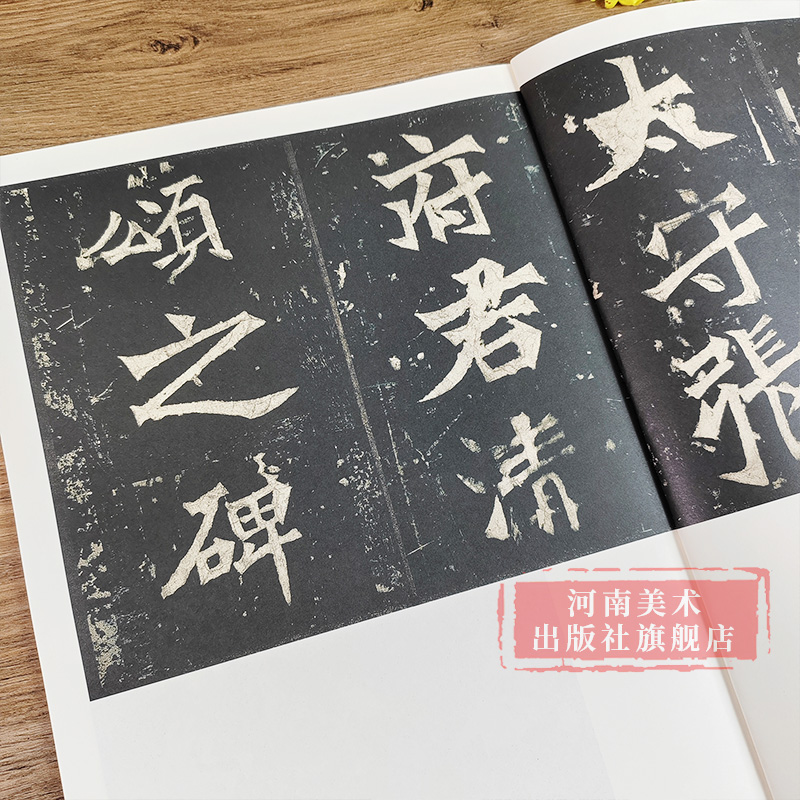 太守張
府君清
頌之碑
河南美术
出版社旗舰店